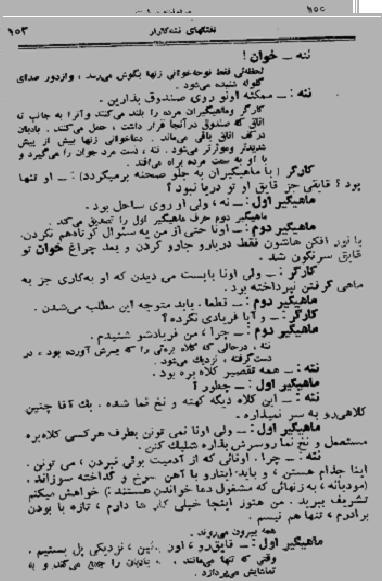 ۱۵۳
ننه ــ خوان !
لحظه‌ئی فقط نوحه‌خوانی زنها بگوش می‌رسد ، و از دور صدای
گلوله شنیده می‌شود .
ننه : ــ ممکنه اونو روی صندوق بذارین .
کارگر وماهیگیران مرده را بلند می‌کنند و آنرا به جانب ته
اتاق که صندوق در آنجا قرار داشت ، حمل می‌کنند . بادبان
در کف اتاق باقی می‌ماند . دعاخوانی زنها بیش از پیش
شدیدتر وموثرتر می‌شود . ننه ، دست مرد جوان را می‌گیرد و
با او به سمت مرده براه می‌افتد .
کارگر ( با ماهیگیران به جلو صحنه برمیگردد ) : ــ او تنها
بود ؟ قایقی جز قایق او تو دریا نبود ؟
ماهیگیر اول : ــ نه ، ولی او روی ساحل بود .
ماهیگیر دوم حرف ماهیگیر اول را تصدیق می‌کند .
ماهیگیر دوم : ــ اونا حتی از من یه سئوال کوتاه‌هم نکردن.
با نور افکن هاشون فقط دریارو جارو کردن و بعد چراغ خوان تو
قایق سرنگون شد .
کارگر : ــ ولی اونا بایست می دیدن که او به‌کاری جز به
ماهی گرفتن نپرداخته بود .
ماهیگیر دوم : ــ قطعا . باید متوجه این مطلب می‌شدن .
کارگر : ــ و آیا فریادی نکرد ؟
ماهیگیر دوم : ــ چرا ، من فریادشو شنیدم .
ننه ، درحالی که کلاه بره‌ئی را که پسرش آورده بود ، در
دست‌گرفته ، نزدیک می‌شود .
ننه : ــ همه تقصیر کلاه بره بود .
ماهیگیر اول : ــ چطور ؟
ننه : ــ این کلاه دیگه کهنه و نخ نما شده . یک آقا چنین
کلاهی‌رو به سر نمیذاره .
ماهیگیر اول : ــ ولی اونا نمی تونن بطرف هرکسی کلاه‌بره
مستعمل و نخ نما روسرش بذاره شلیک کنن .
ننه : ــ چرا . اونائی که از آدمیت بوئی نبردن ، می تونن .
اینا جذام هستن ، و باید اینارو با آهن سرخ و گداخته سوزاند .
(مودبانه ، به زنهائی که مشغول دعا خواندن هستند :) خواهش میکنم
تشریف ببرید . من هنوز اینجا خیلی کار ها دارم ، تازه با بودن
برادرم ، تنها هم نیسم .
همه بیرون می‌روند .
ماهیگیر اول : ــ قایق‌رو ، اون نزدیکی پل بستیم .
وقتی که تنها می‌مانند ، بادبان را جمع می‌کند و به
تماشایش می‌پردازد .